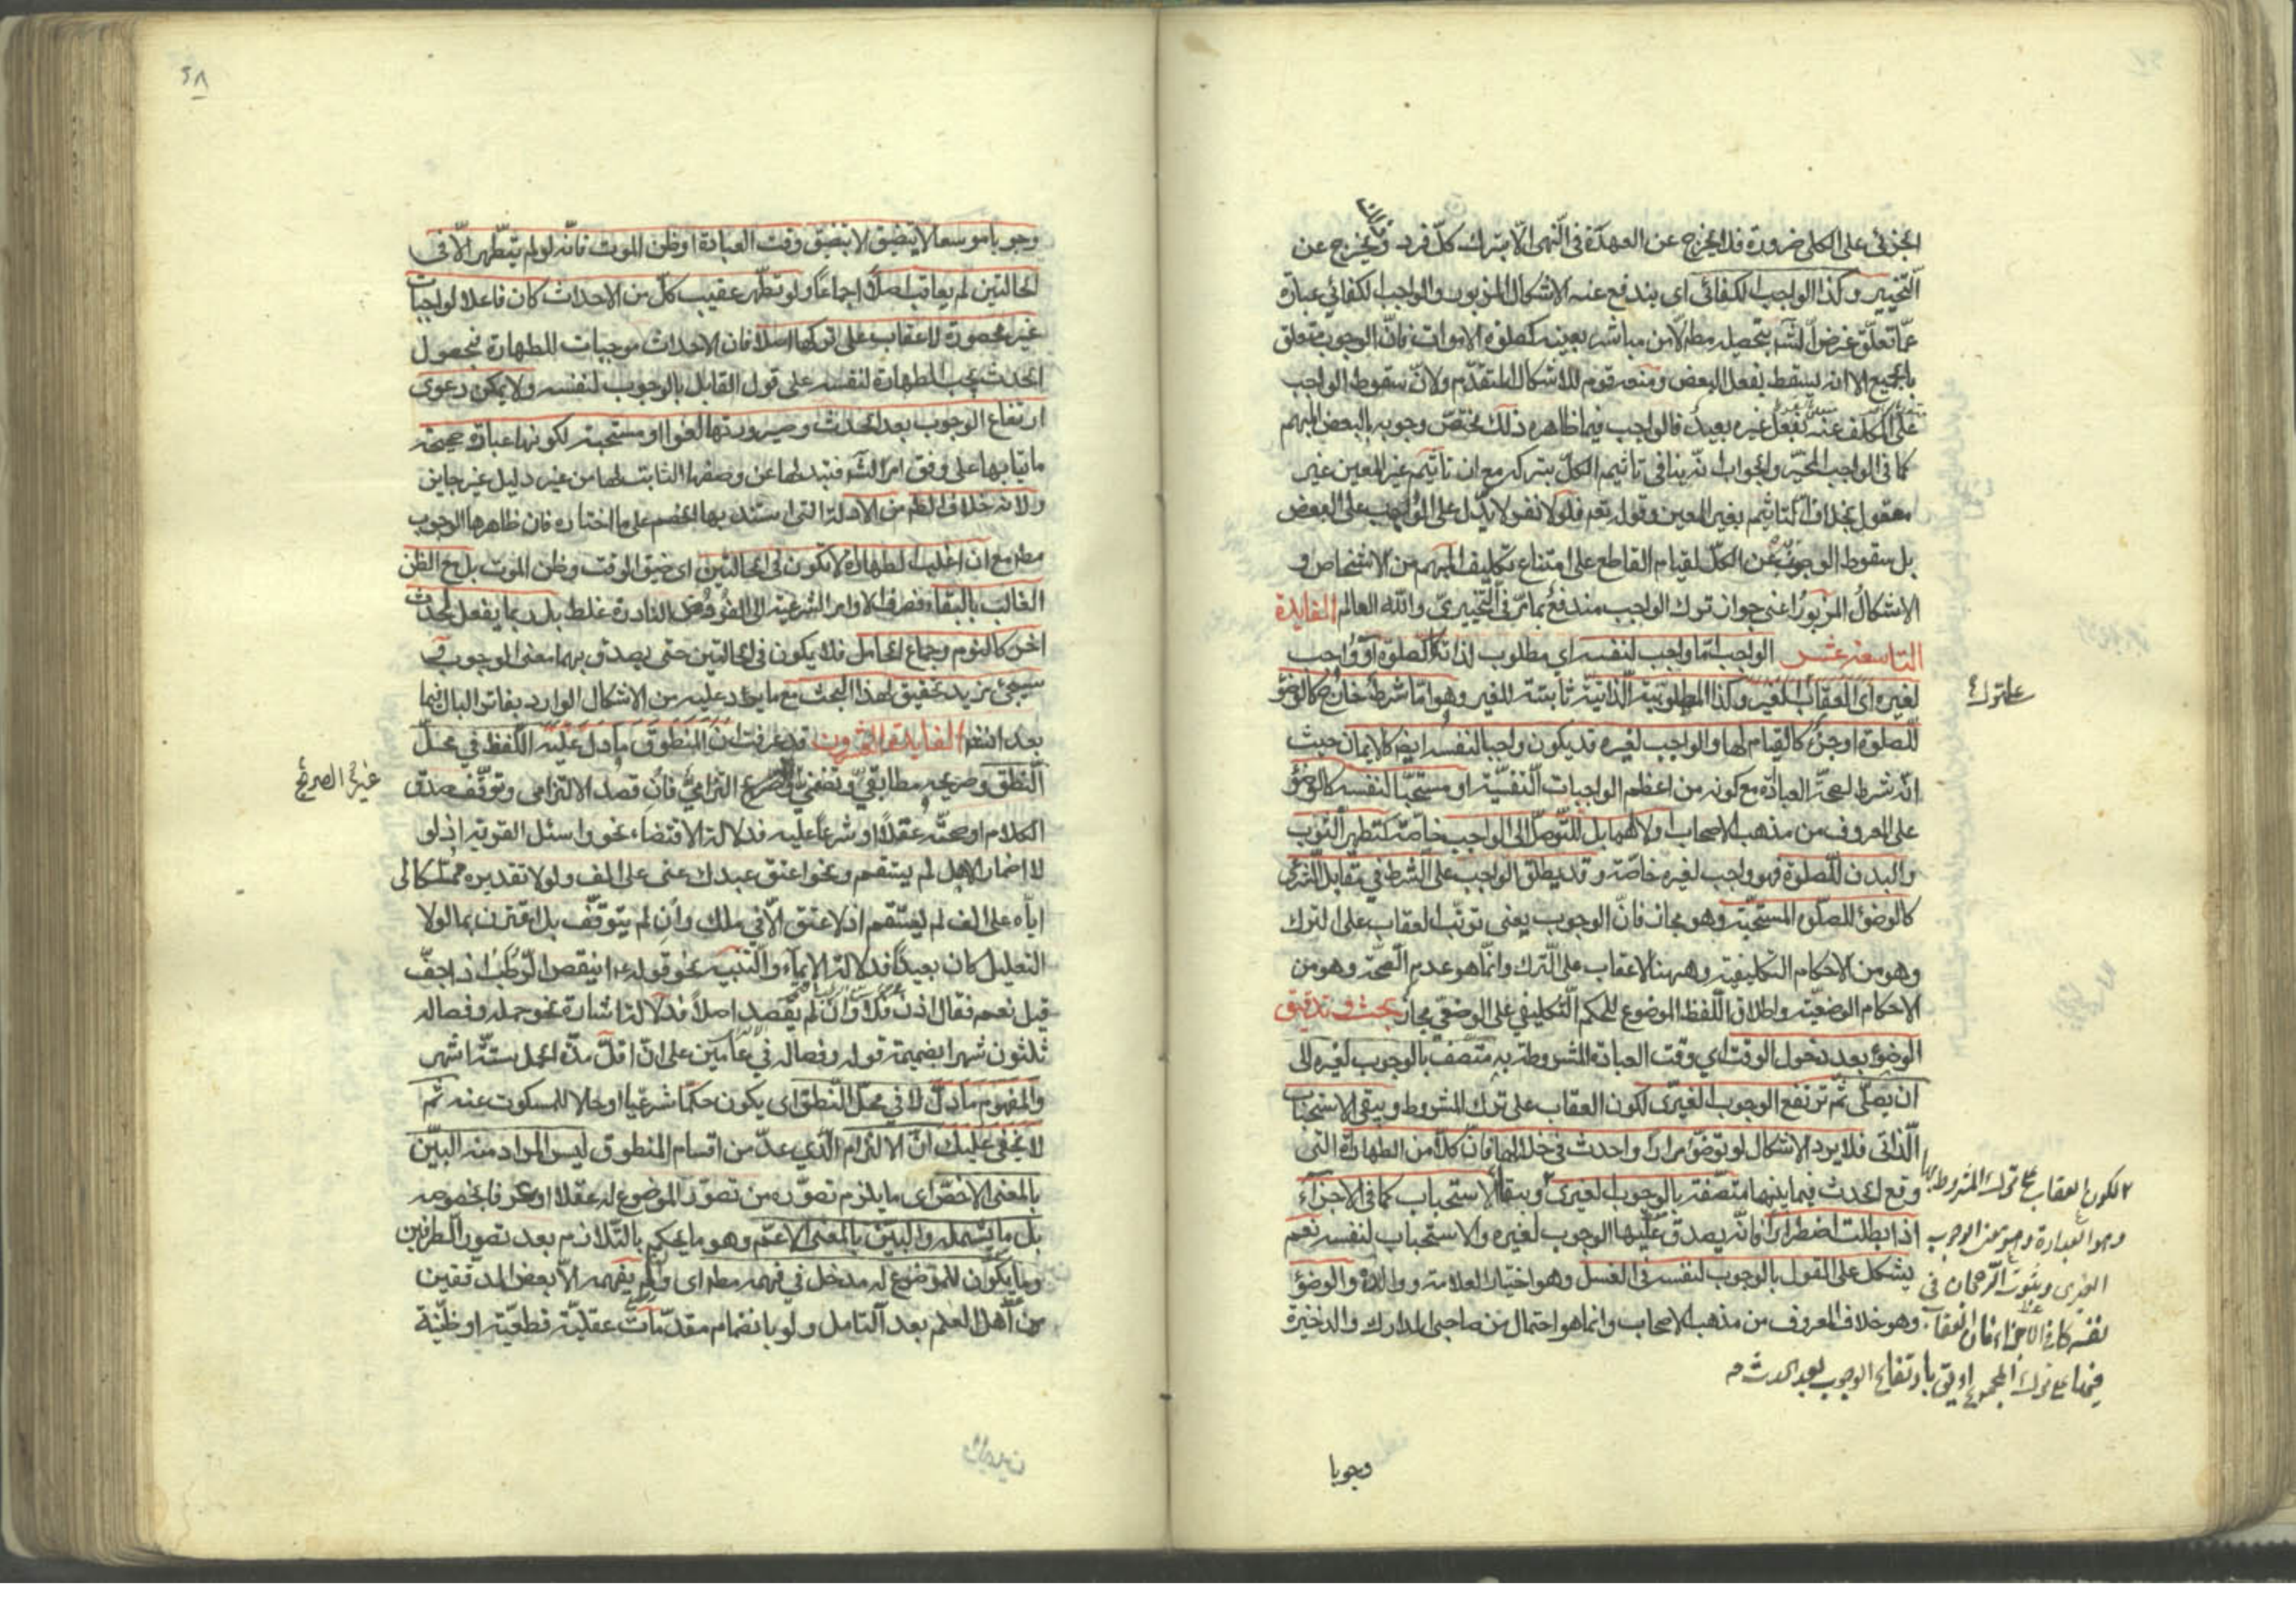 الجزئى على الكلى ضرورة فلا يخرج عن العهدة فى النهى الا بترك كل فرد ويخرج عن
التخيير وكذا الواجب الكفائى اى يندفع عنه الاشكال المزبور والواجب الكفائي عبارة
عما تعلق غرض الش بتحصيله مط لا من مباشر بعينه كصلوة الاموات فان الوجوب متعلق
بالجميع الا انه يسقط بفعل البعض ومنعه قوم للاشكال المتقدم ولان سقوط الواجب
على المكلف عنه بفعل غيره بعيد فالواجب فيما ظاهره ذلك يختص وجوبه بالبعض المبهم
كما فى الواجب المخير والجواب انه ينافى تاثيم الكل بتركه مع ان تاثيم غير المعين غير
معقول بخلاف التاثيم بغير المعين وقوله تعم فلولا نفر لا يدل على الواجب على البعض
بل سقوط الوجوب عن الكل لقيام القاطع على امتناع تكليف المبهم من الاشخاص و
الاشكال المزبور اعنى جواز ترك الواجب مندفع بما مر فى التخييرى والله العالم الفايدة
التاسعة عشر الواجب اما واجب لنفسه اي مطلوب لذاته كالصلوة او واجب
لغيره اى العقاب لغير وكذا المطلوبية الذاتية ثابتة للغير وهو اما شرط خارج كالوضؤ
للصلوة او جزء كالقيام لها والواجب لغيره قد يكون واجبا لنفسه ايض كالايمان حيث
انه شرط لصحة العبادة مع كونه من اعظم الواجبات النفسية او مستحبا لنفسه كالوضؤ
على المعروف من مذهب الاصحاب ولا لهما بل للتوصل الى الواجب خاصة كتطهير الثوب
والبدن للصلوة فهو واجب لغيره خاصة وقد يطلق الواجب على الشرط في مقابل الشرطى
كالوضؤ للصلوة المستحبة وهو مجاز فان الوجوب يعنى ترتب العقاب على الترك
وهو من الاحكام التكليفية وههنا لا عقاب على الترك وانما هو عدم الصحة وهو من
الاحكام الوضعية واطلاق اللفظ الموضوع للحكم التكليفي على الوضعي مجاز بحث وتدقيق
الوضوء بعد دخول الوقت اي وقت العبادة المشروطة به متصف بالوجوب لغيره الى
ان يصلى ثم ترتفع الوجوب الغيرى لكون العقاب على ترك المشروط ويبقى الاستحباب
الذاتى فلا يرد الاشكال لو توضؤ مرارا واحدث فى خلالها فان كلا من الطهارة التى
وقع الحدث فيما بينها متصفة بالوجوب الغيرى ويبقا الاستحباب كما فى الاجزاء
اذا بطلت اضطرارا فانه يصدق عليها الوجوب لغيره والاستحباب لنفسه نعم
يشكل على القول بالوجوب لنفسه فى الغسل وهو اختيار العلامة ووالده والوضؤ
وهو خلاف المعروف من مذهب الاصحاب وانما هو احتمال من صاحبى المدارك والذخيرة
على ترك
لكون العقاب على ترك المشروط بها
وهو العبادة وهو معنى الوجوب
الغيرى وثبوت الرجحان فى
نفسه كما فى الاجزاء فان العقاب
فيها على ترك المجموع او يق بارتفاع الوجوب بعد الحدث منه
وجوبا
٢٨
وجوبا موسعا لا يتضيق الا بتضيق وقت العبادة او ظن الموت فانه لو لم يتطهر الا فى
الحالتين لم يعاقب اصلا اجماعا ولو تطهر عقيب كل من الاحداث كان فاعلا لواجبات
غير محصورة لا عقاب على تركها اصلا فان الاحداث موجبات للطهارة فبحصول
الحدث يجب الطهارة لنفسه على قول القايل بالوجوب لنفسه ولا يمكن دعوى
ارتفاع الوجوب بعد الحدث وصيرورتها لغوا او مستحبة لكونها عبادة صحيحة
ماتيا بها على وفق امر الش فتبدلها عن وصفها الثابت لها من غير دليل غير جايز
ولانه خلاف الظم من الادلة التى استند بها الخصم على ما اختاره فان ظاهرها الوجوب
مط مع ان اغلب الطهارة لا تكون فى الحالتين اى ضيق الوقت وظن الموت بل مع الظن
الغالب بالبقاء فصرف الاوامر الشرعية الى الفروض النادرة غلط بل ربما يفعل لحدث
اخر كالنوم وجماع الحامل فلا يكون فى الحالتين حتى يصدق بهما معنى الوجوب و
سيجئ مزيد تحقيق لهذا البحث مع ما يورد عليه من الاشكال الوارد بفاتر البال فيما
بعد انتظم الفايدة العشرون قد عرفت ان المنطوق ما دل عليه اللفظ في محل
النطق وصريحه مطابقي وتضمني الصريح التزامي فان قصد الالتزامى وتوقف صدق
غير الصريح
الكلام او صحته عقلا او شرعا عليه فدلالة الاقتضاء نحو واسئل القرية اذ لو
لا اضمار الاهل لم يستقم ونحو اعتق عبدك عنى على الف ولولا تقديره مملكا لى
اياه على الف لم يستقم اذ لا عتق الا في ملك وان لم يتوقف بل اقترن بما لولا
التعليل كان بعيدا فدلالة الايماء والتنبيه نحو قوله ع اينقص الرطب اذا جف
قيل نعم فقال اذن فلا وان لم يقصد اصلا فدلالة اشارة نحو حمله وفصاله
ثلثون شهرا بضميمة قوله وفصاله في عامين على ان اقل مدة الحمل ستة اشهر
والمفهوم ما دل لا في محل النطق اى يكون حكما شرعيا او حالا للمسكوت عنه ثم
لا يخفى عليك ان الالتزام الذي عد من اقسام المنطوق ليس المراد منه البين
بالمعنى الاخص اى ما يلزم تصوره من تصور الموضوع له عقلا او عرفا بخصوصه
بل ما يشمله والبين بالمعنى الاعم وهو ما يحكم بالتلازم بعد تصور الطرفين
وما يكون للموضوع له مدخل في فهمه مط اى ولم يفهمه الا بعض المدققين
من اهل العلم بعد التامل ولو بانضمام مقدمات عقلية قطعية او ظنية